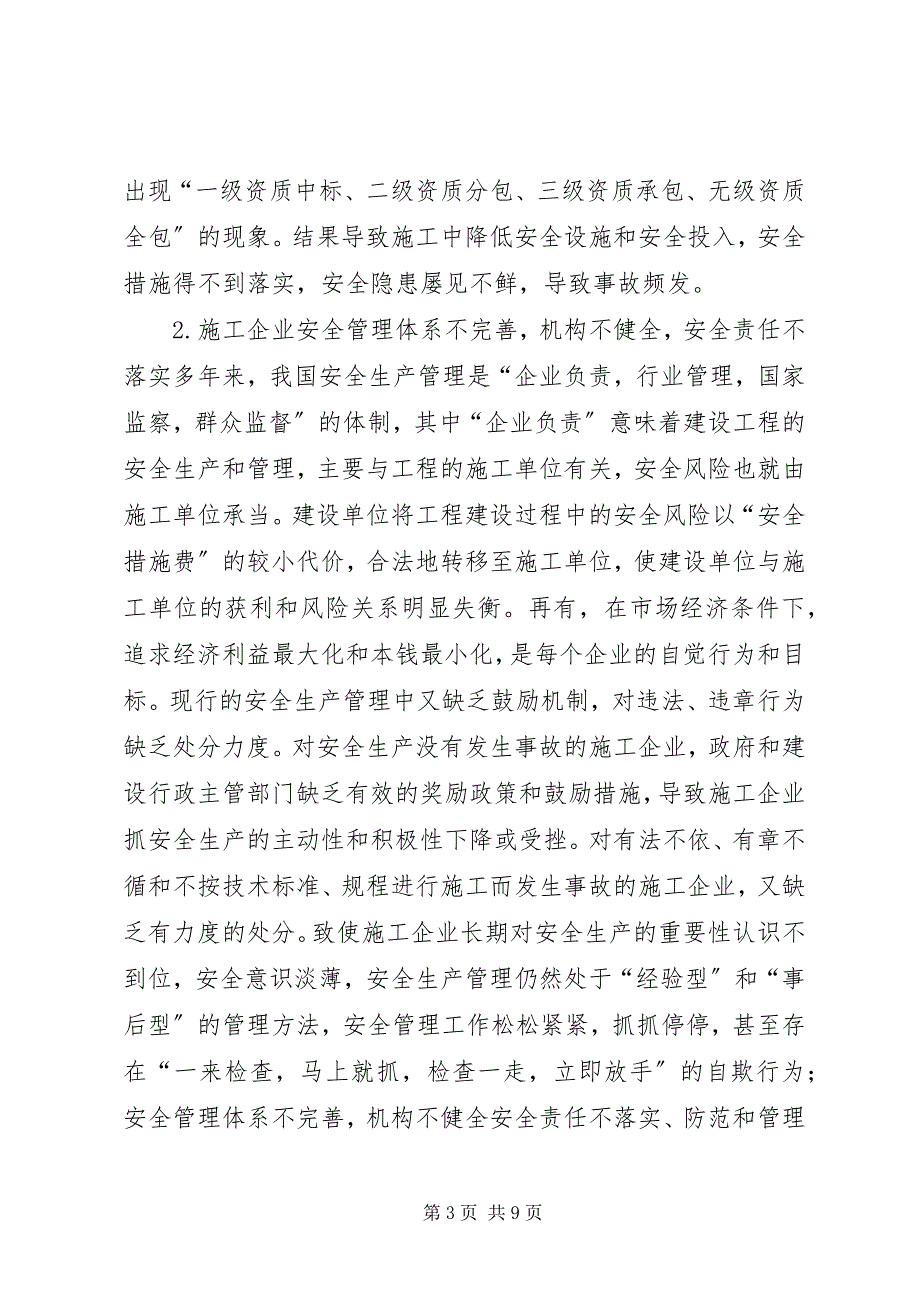 出现“一级资质中标、二级资质分包、三级资质承包、无级资质
全包〞的现象。结果导致施工中降低安全设施和安全投入，安全
措施得不到落实，安全隐患屡见不鲜，导致事故频发。
2.施工企业安全管理体系不完善，机构不健全，安全责任不
落实多年来，我国安全生产管理是“企业负责，行业管理，国家
监察，群众监督〞的体制，其中“企业负责〞意味着建设工程的
安全生产和管理，主要与工程的施工单位有关，安全风险也就由
施工单位承当。建设单位将工程建设过程中的安全风险以“安全
措施费〞的较小代价，合法地转移至施工单位，使建设单位与施
工单位的获利和风险关系明显失衡。再有，在市场经济条件下，
追求经济利益最大化和本钱最小化，是每个企业的自觉行为和目
标。现行的安全生产管理中又缺乏鼓励机制，对违法、违章行为
缺乏处分力度。对安全生产没有发生事故的施工企业，政府和建
设行政主管部门缺乏有效的奖励政策和鼓励措施，导致施工企业
抓安全生产的主动性和积极性下降或受挫。对有法不依、有章不
循和不按技术标准、规程进行施工而发生事故的施工企业，又缺
乏有力度的处分。致使施工企业长期对安全生产的重要性认识不
到位，安全意识淡薄，安全生产管理仍然处于“经验型〞和“事
后型〞的管理方法，安全管理工作松松紧紧，抓抓停停，甚至存
在“一来检查，马上就抓，检查一走，立即放手〞的自欺行为；
安全管理体系不完善，机构不健全安全责任不落实、防范和管理
第3页 共9页